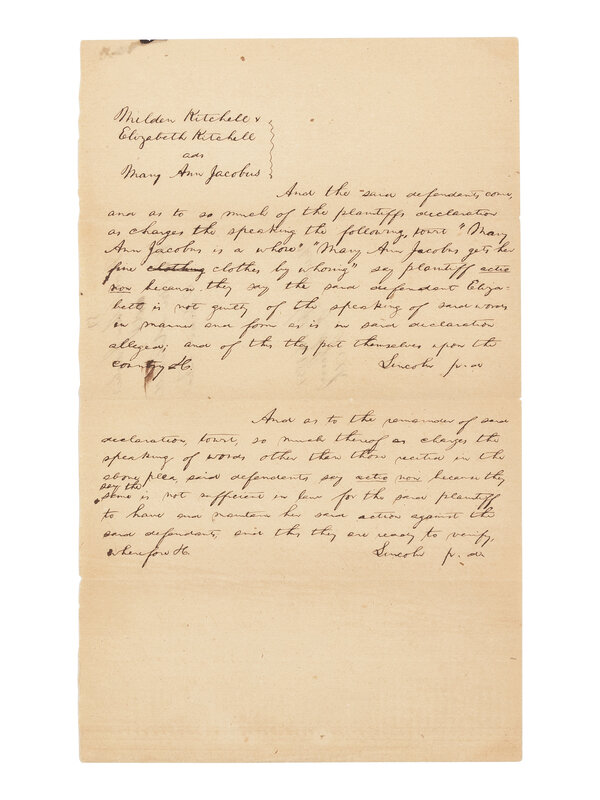 Milden Kitchell &
Elizabeth Kitchell
ads
Mary Ann Jacobus
And the said defendants come,
and as to so much of the plaintiffs declaration
as charges the speaking the following, towit "Mary
Ann Jacobus is a whore" "Mary Ann Jacobus gets her
fine clothing clothes by whoring" say plaintiff actio
non because they say the said defendant Eliza-
beth is not guilty of the speaking of said words
in manner and form as is in said declaration
alleged; and of this they put themselves upon the
country &c.
Lincoln p. d.
And as to the remainder of said
declaration, towit, so much thereof as charges the
speaking of words other than those recited in the
above plea, said defendants say actio non because they
say the
same is not sufficient in law for the said plaintiff
to have and maintain her said action against the
said defendants, and this they are ready to verify,
wherefore &c.
Lincoln p. d.